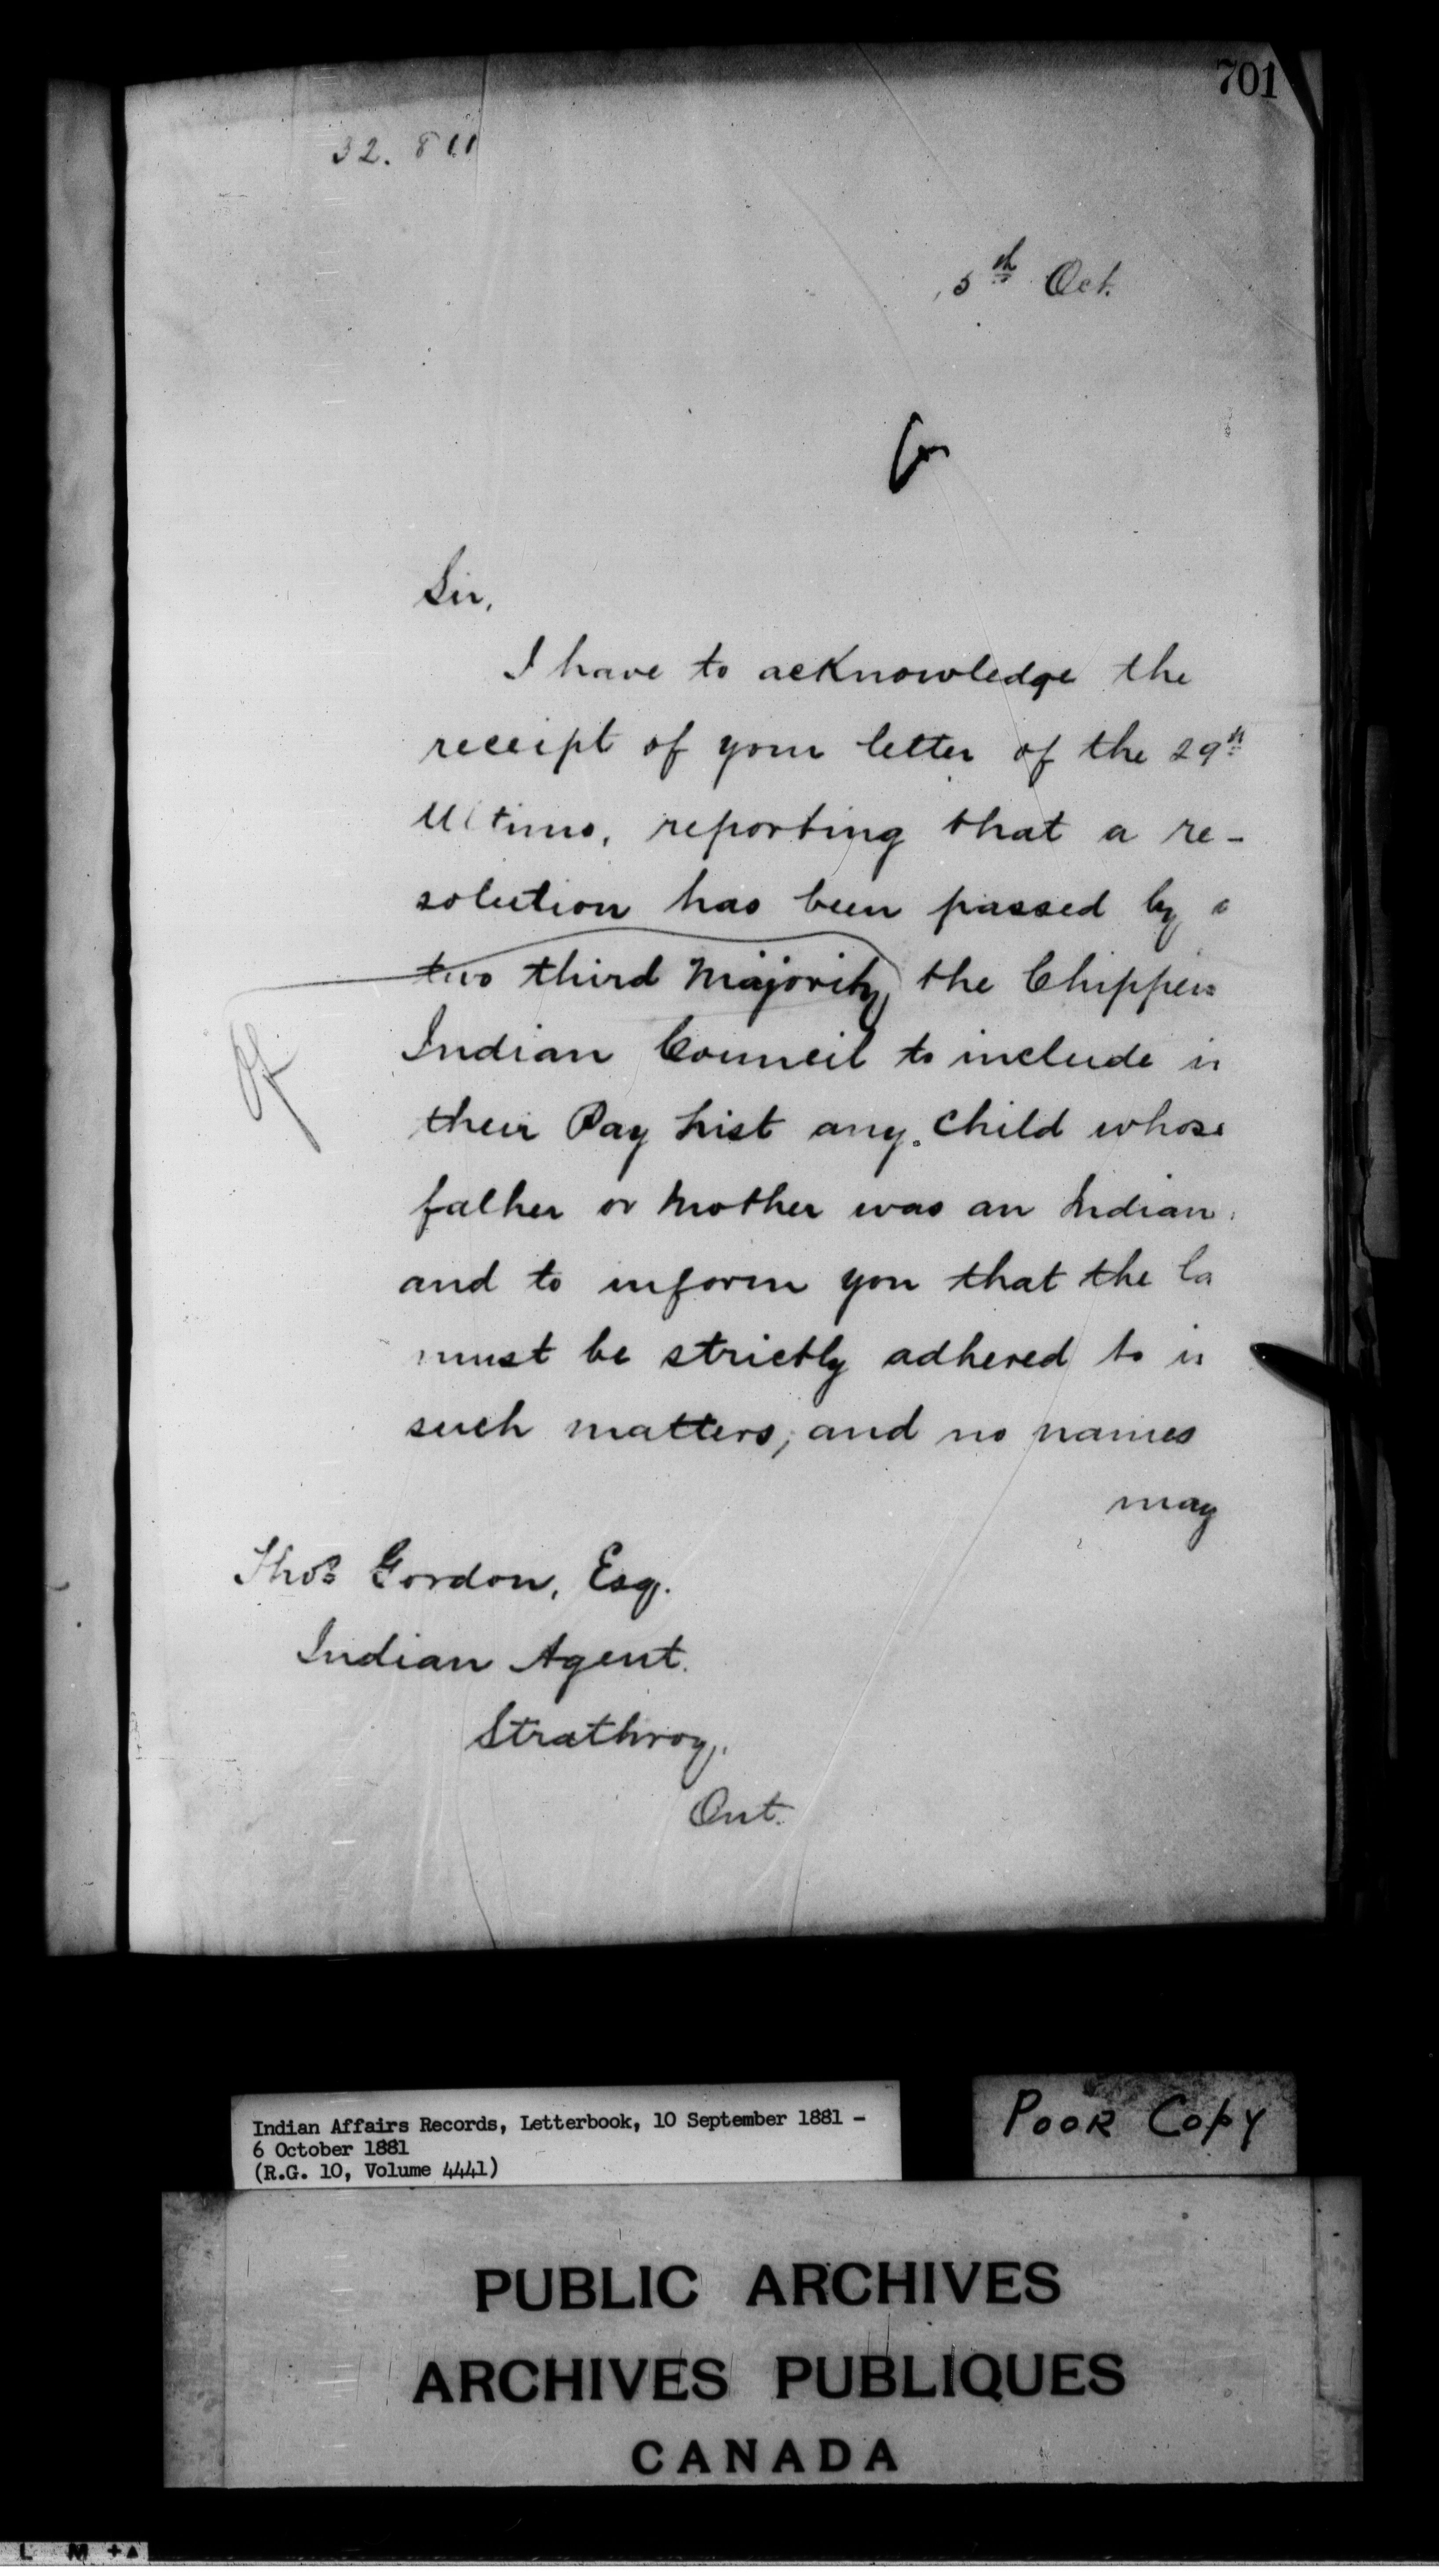 701
32.811
5th Oct.
Sir,
I have to acknowledge the
receipt of your letter of the 29th
Ultimo, reporting that a re-
solution has been passed by a
two third Majority, the Chippew
Indian Council to include in
their Pay List any child whose
father or Mother was an Indian,
and to inform you that the la
must be strictly adhered to in
such matters, and no names
may
Of
Thos Gordon, Esq.
Indian Agent.
Strathroy,
Ont.
Indian Affairs Records, Letterbook, 10 September 1881 -
6 October 1881
(R.G. 10, Volume 4441)
POOR COPY
PUBLIC ARCHIVES
ARCHIVES PUBLIQUES
CANADA